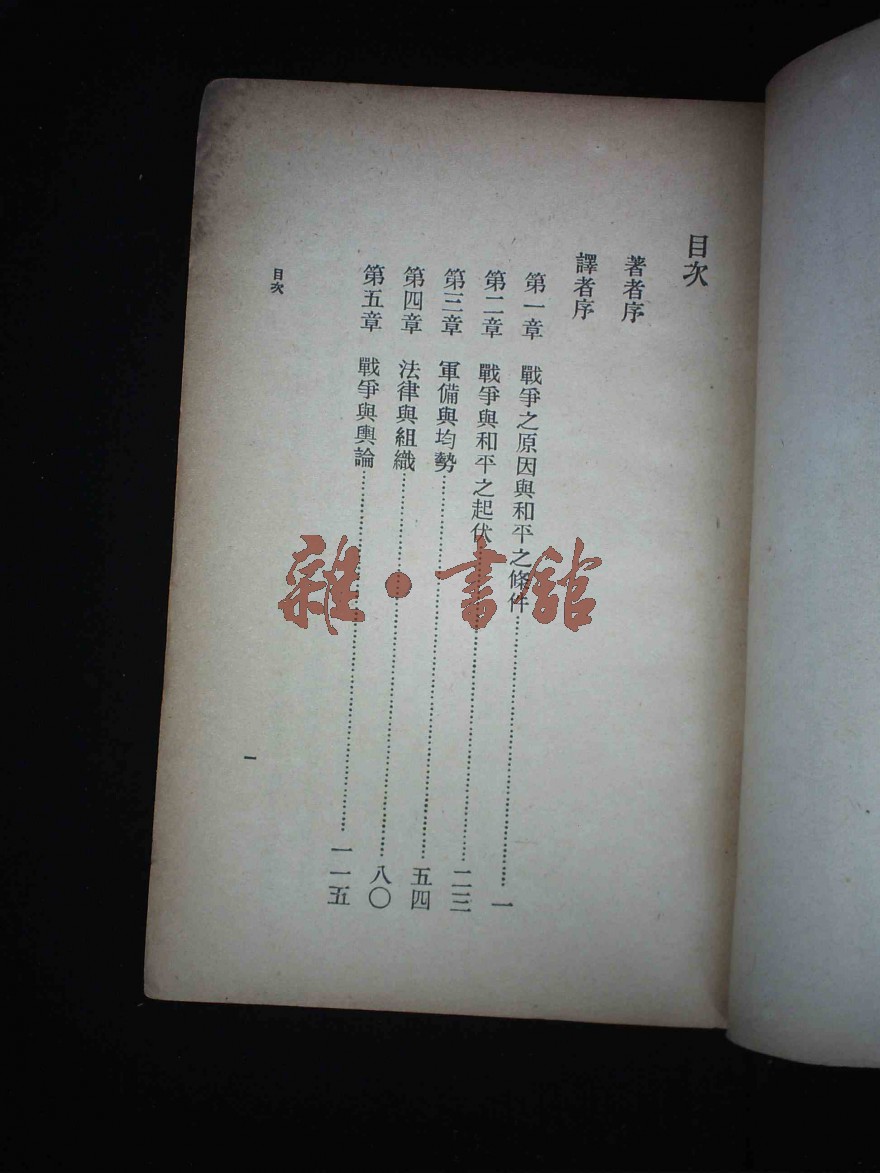 目次
著者序
譯者序
第一章 戰爭之原因與和平之條件……一
第二章 戰爭與和平之起伏……二三
第三章 軍備與均勢……五四
第四章 法律與組織……八〇
第五章 戰爭與輿論……一一五
目次
一
雜·書館